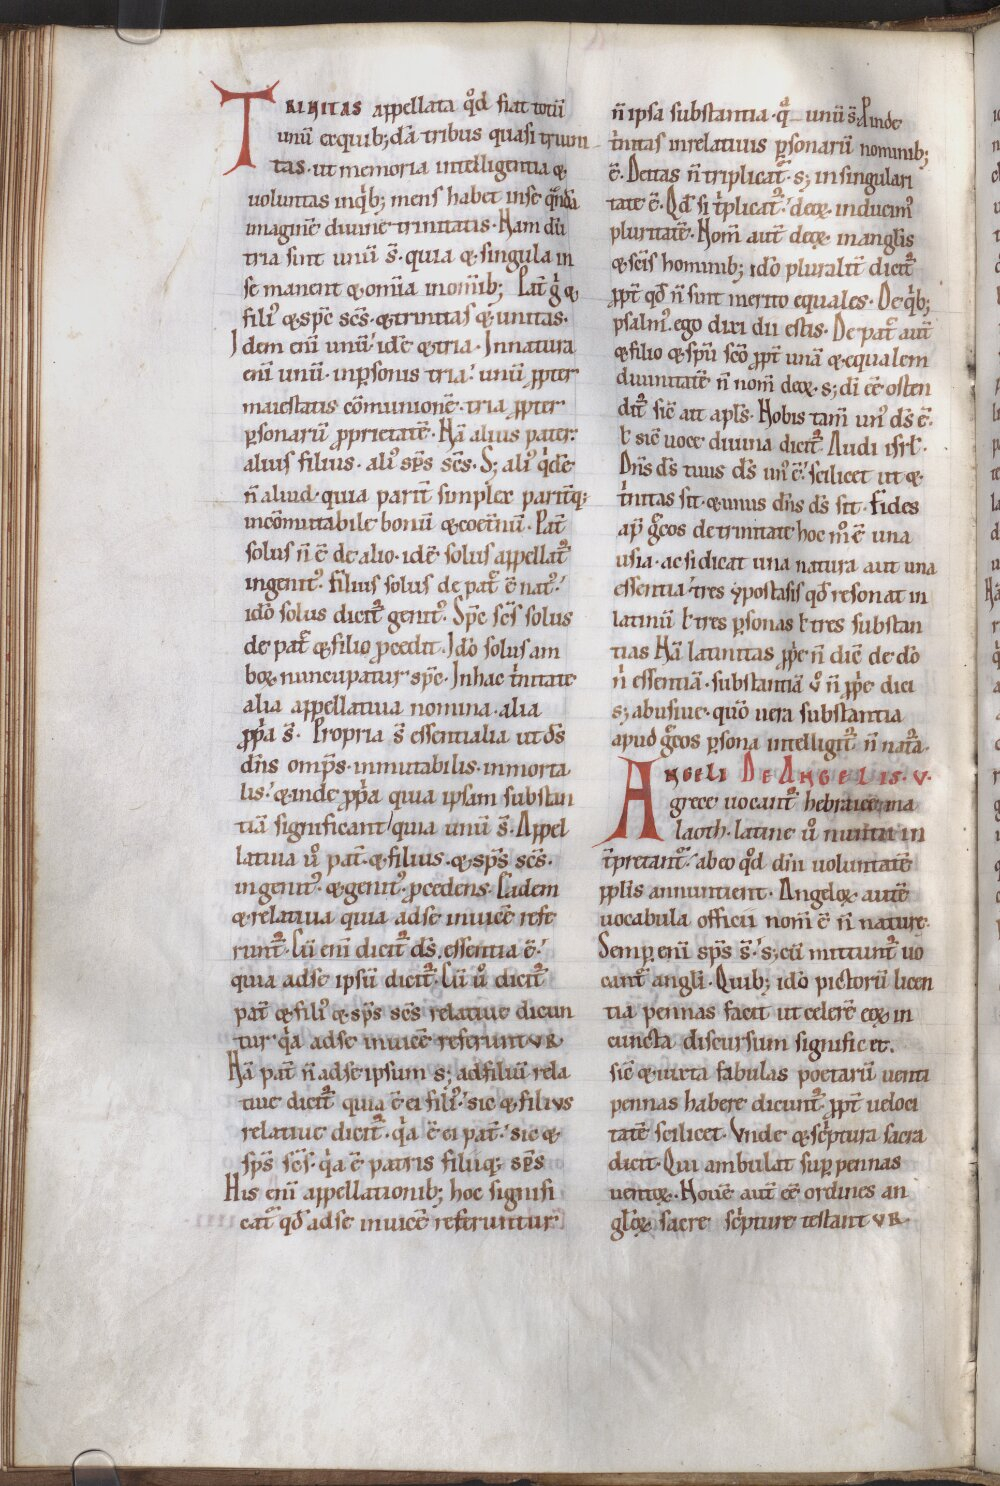 TRINITAS appellata q̊d fiat totū
unū ex quib; dā tribus quasi triuni
tas. ut memoria intelligentia &
uoluntas in q̇b; mens habet in se q̄ndā
imaginē diuine trinitatis. Nam dū
tria sint unū s̄. quia & singula in
se manent & om̄ia in om̄ib; Pat̄ g̊ &
fili᾿ & sp̄c sc̄s. & trinitas & unitas.
Idem eni unū᾿ idē & tria. In natura
eni unū. in ꝑsonis tria᾿ unū ꝓpter
maiestatis cōmunionē. tria ꝓpter
ꝑsonarū ꝓprietatē. Nā alius pater.
alius filius. ali᾿ sp̄s sc̄s. S; ali᾿ q̇dē
n̄ aliud. quia parit̄ simplex parit̄q;
incōmutabile bonū & coet̄nū. Pat̄
solus n̄ ē de alio. idē solus appellat᾿
ingenit᾿. filius solus de pat̄ ē nat᾿.
idō solus dicit᾿ genit᾿. Sp̄c sc̄s solus
de pat̄ & filio ꝓcedit. Idō solus am
boꝝ nuncupatur sp̄c. In hac ṫnitate
alia appellatiua nomina. alia
ꝓṗa s̄. Propria s̄ essentialia ut d̄s
dn̄s omp̄s. inmutabilis. inmorta
lis᾿ & inde ꝓṗa quia ipsam substan
tiā significant quia unū s̄. Appel
latiua ů pat̄. & filius. & sp̄s sc̄s.
ingenit᾿. & genit᾿. ꝓcedens. Eadem
& relatiua quia ad se inuicē refe
runt᾿. Cū eni dicit᾿ d̄s. essentia ē᾿.
quia ad se ipsū dicit᾿. Cū ů dicit᾿
pat̄ & fili᾿ & sp̄s sc̄s relatiue dicun
tur q̇a ad se inuicē referuntUR
Nā pat̄ n̄ ad se ipsum s; ad filiū rela
tiue dicit᾿ quia ē ei fili᾿.᾿ sic & filius
relatiue dicit᾿. q̇a ē ei pat̄.᾿ sic &
sp̄s sc̄s. q̇a ē patris filiiq; sp̄s
His eni appellationib; hoc signifi
cat᾿ q̊d ad se inuicē referuntur
n̄ ipsa substantia. q̄ unū s̄. Proinde
ṫnitas in relatiuis ꝑsonarū nominib;
ē. Deitas n̄ triplicat᾿. s; in singulari
tate ē. Qđ si ṫplicat᾿.᾿ deoꝝ inducim᾿
pluritatē. Nom̄ aut̄ deoꝝ in angl̄is
& sc̄is hominib; idō pluralit̄ dicit᾿
ꝓpt̄ qđ n̄ sunt merito equales. De q̇b;
psalm᾿. ego dixi dii estis. De pat̄ aut̄
& filio & sp̄u sc̄o ꝓpt̄ unā & equalem
diuinitatē n̄ nom̄ deoꝝ. s; dī ēe osten
dit᾿ sic̄ ait apl̄s. Nobis tam̄ un᾿ d̄s ē.
ƚ sic̄ uoce diuina dicit᾿. Audi isrl̄.
Dn̄s d̄s tuus d̄s un᾿ ē᾿. scilicet ut &
ṫnitas sit. & unus dn̄s d̄s sit. Fides
ap̄ ḡcos de trinitate hoc m̊ ē una
usia. ac si dicat una natura aut una
essentia᾿ tres ypostasis qđ resonat in
latinū ƚ tres ꝑsonas ƚ tres substan
tias Nā latinitas ꝓp̄e n̄ dic̄ de dō
n̄ essentiā. substantiā ů n̄ ꝓp̄e dici
s; abusiue. quō uera substantia
apud ḡcos ꝑsona intelligit᾿ n̄ nat̄a.
ANGELI DE ANGELIS. V.
grece uocant᾿ hebraice ma
laoth. latine ů nuntii in
t̄pretant᾿.᾿ ab eo q̊d dn̄i uoluntatē
ꝓplis annuntient. Angeloꝝ autē
uocabula officii nom̄ ē n̄ nature.
Semꝑ eni sp̄s s̄.᾿ s; cū mittunt᾿ uo
cant᾿ angl̄i. Quib; idō pictorū licen
tia pennas facit ut celerē eoꝝ in
cuncta discursum significet.
sic̄ & iuxta fabulas poetarū uenti
pennas habere dicunt᾿. ꝓpt̄ ueloci
tatē scilicet. Vnde & sċptura sacra
dicit. Qui ambulat suꝑ pennas
uentoꝝ. Nouē aut̄ ēe ordines an
gl̄oꝝ sacre sċpture testantUR